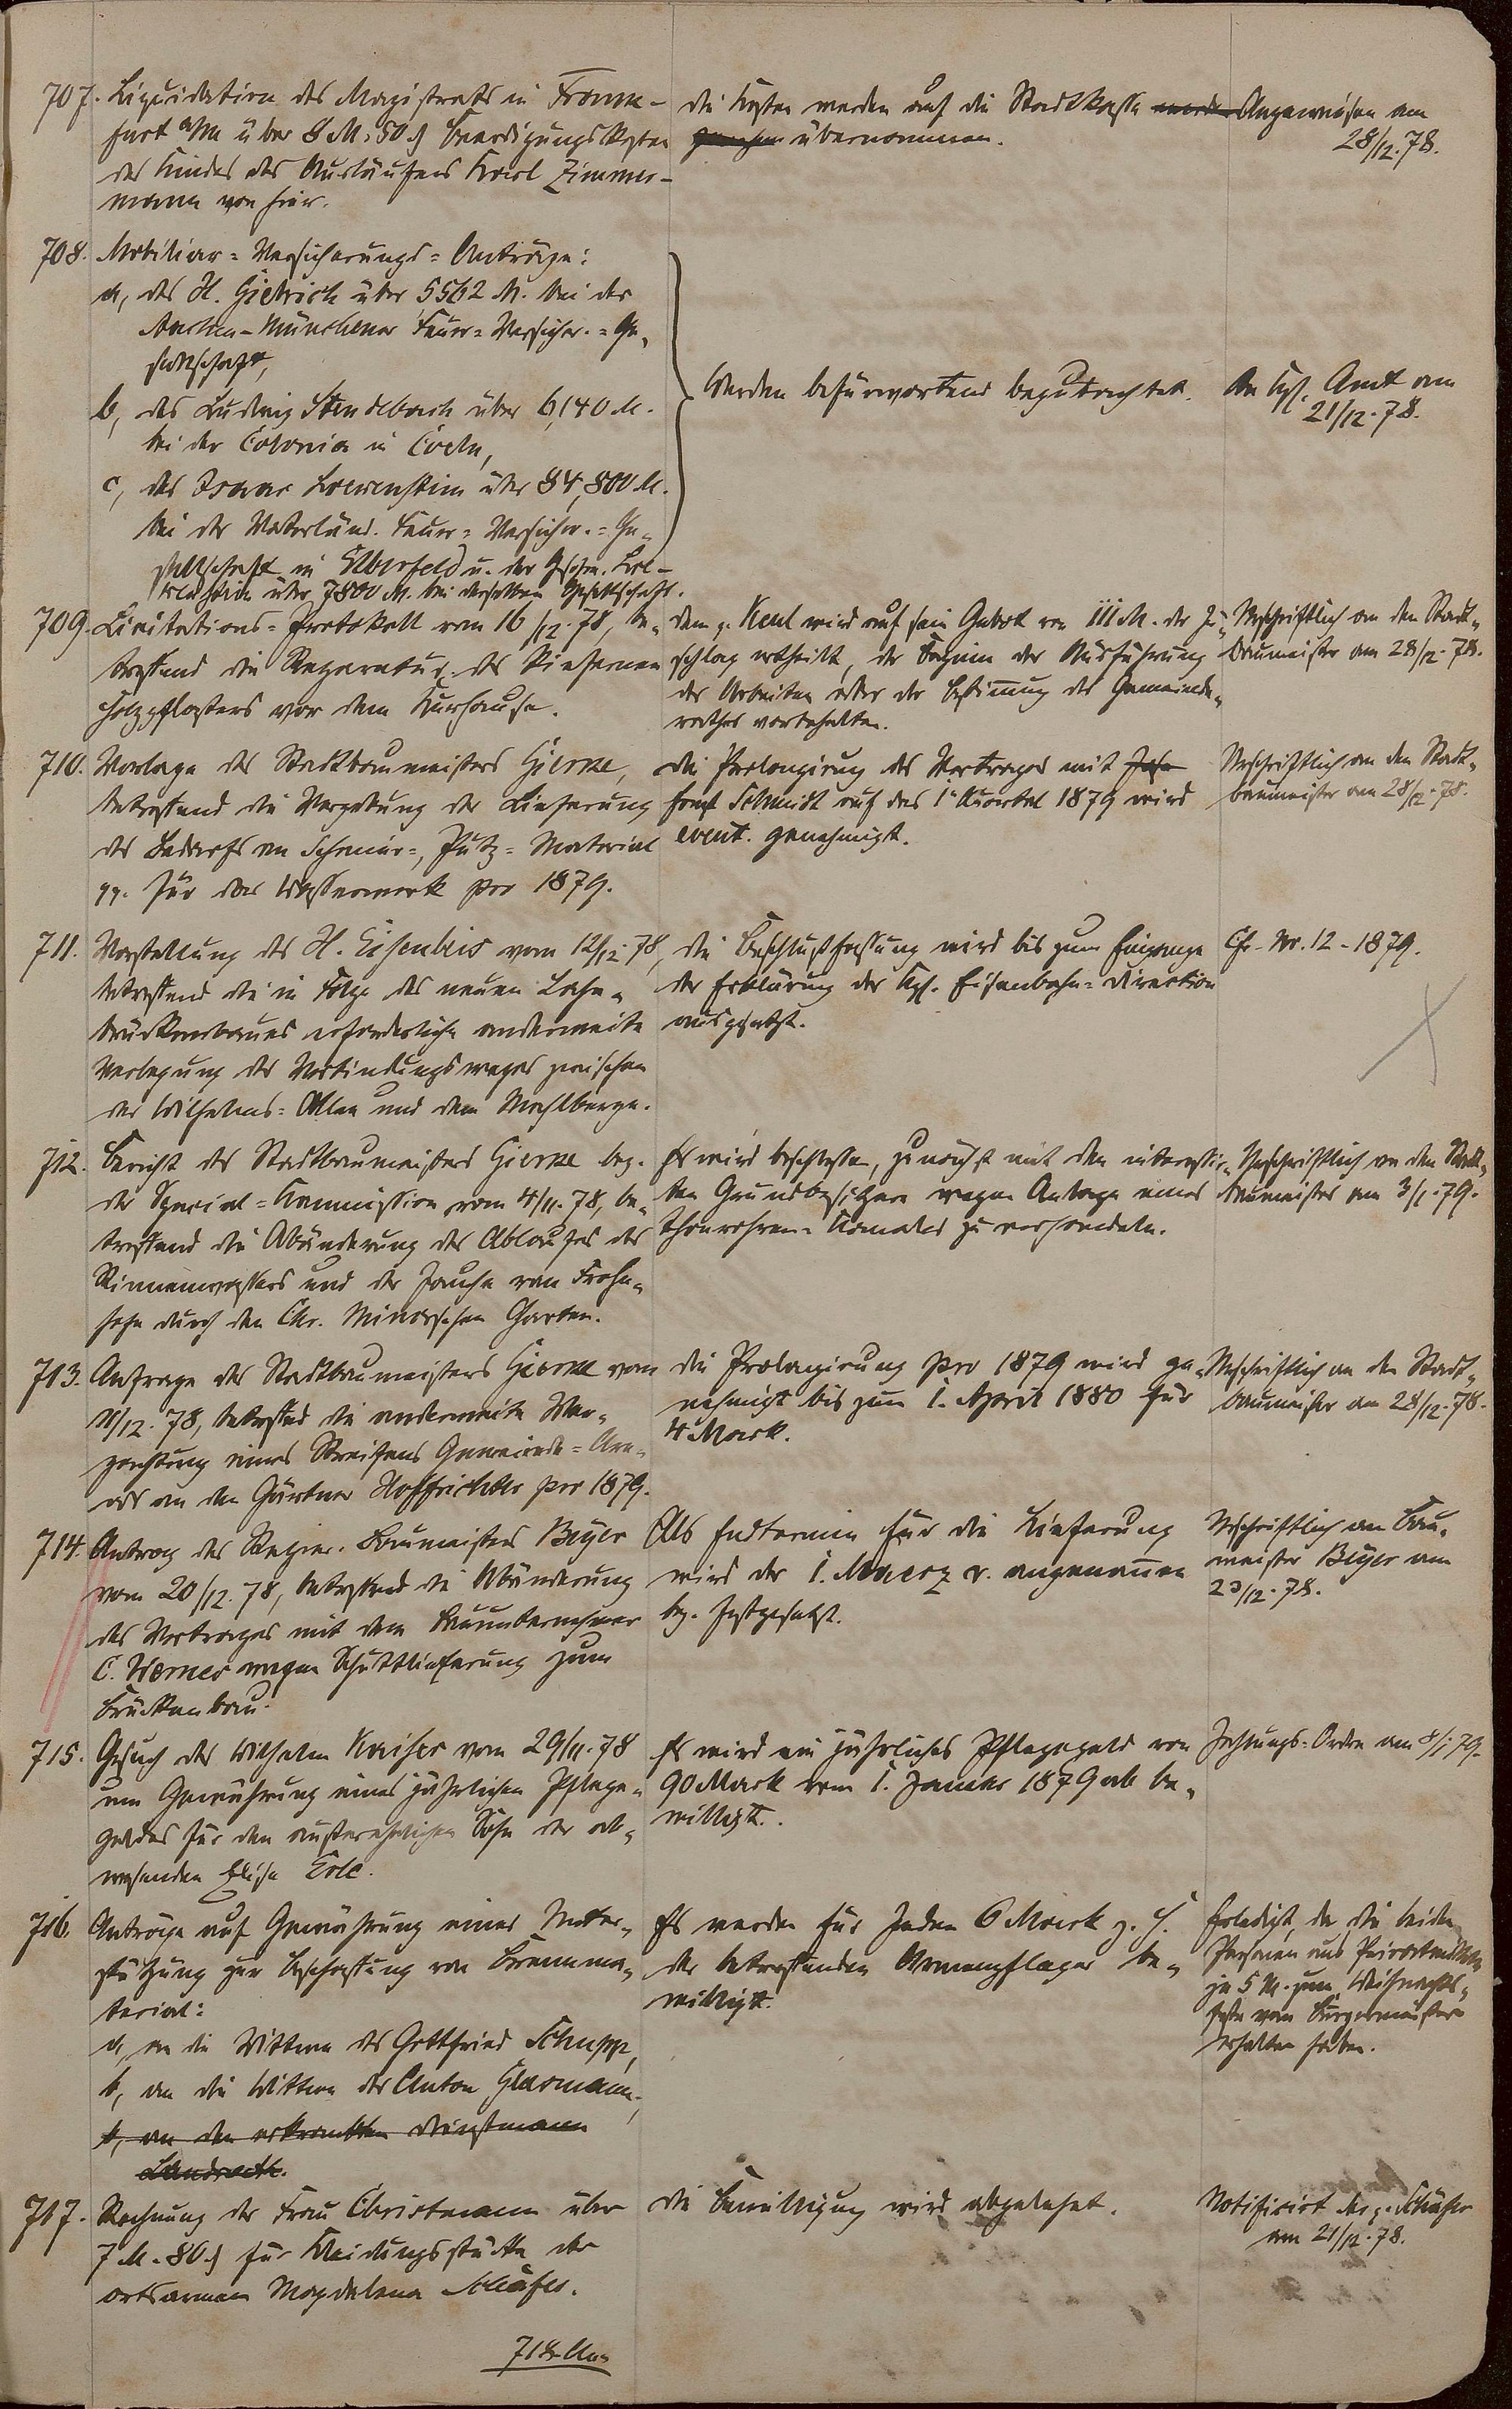 707. Liquidation des Magistrats in Frank-
furt a/M über 8 M. 50 ₰ Beerdigungskosten
des Kindes des Ausläufers Karl Zimmer-
mann von hier.
Die Kosten werden auf die Stadtkasse werden
übernommen.
Angewiesen am
28/12.78.
708. Mobiliar-Versicherungs-Anträge:
a, des H. Gietrich über 5562 M. bei der
Aachen-Münchener Feuer-Versicher.-Ge-
sellschaft,
b, des Ludwig Stendebach über 6140 M.
bei der Colonia in Coeln,
c, des Isaac Loewenstein über 84,800 M.
bei der Vaterländ. Feuer-Versicher.-Ge-
sellschaft in Elberfeld u. der Geschw. Loe-
wenstein über 7800 M. bei derselben Gesellschaft.
Werden befürwortend begutachtet.
An Kgl. Amt am
21/12.78.
709. Licitations-Protokoll vom 16/12.78, be-
treffend die Reparatur des kiefernen
Holzpflasters vor dem Kurhause.
Dem p. Keul wird auf sein Gebot von 111 M. der Zu-
schlag ertheilt, der Beginn der Ausführung
der Arbeiten aber der Bestimmung des Gemeinde-
rathes vorbehalten.
Urschriftlich an den Stadt-
baumeister am 28/12.78.
710. Vorlage des Stadtbaumeisters Gierse,
betreffend die Vergebung der Lieferung
des Bedarfs an Schmier-, Putz-Material
pp. für das Wasserwerk pro 1879.
Die Prolongirung des Vertrages mit
Schmidt auf das 1te Quartal 1879 wird
event. genehmigt.
Urschriftlich an den Stadt-
baumeister am 28/12.78.
711. Vorstellung des H. Eisenbeis vom 12/12.78,
betreffend die in Folge des neuen Lahn-
brückenbaues erforderliche anderweite
Verlegung des Verbindungsweges zwischen
der Wilhelms-Allee und dem Mahlberge.
Die Beschlußfassung wird bis zum Eingange
der Erklärung der Kgl. Eisenbahn-Direction
ausgesetzt.
Cfr. Nr. 12-1879.
712. Bericht des Stadtbaumeisters Gierse bez.
der Special-Kommission vom 4/11.78, be-
treffend die Abänderung des Ablaufes des
Rinnenwassers und der Jauche von Frohn-
hofe durch den Chr. Minor'schen Garten.
Es wird beschlossen, zunächst mit den interessir-
ten Grundbesitzern wegen Anlage eines
Thonrohren-Kanales zu verhandeln.
Urschriftlich an den Stadt-
baumeister am 3/1.79.
713. Anfrage des Stadtbaumeisters Gierse vom
11/12.78, betreffend die anderweite Ver-
pachtung eines Streifens Gemeinde-Are-
als an den Gärtner Hoffrichter pro 1879.
Die Prolongirung pro 1879 wird ge-
nehmigt bis zum 1. April 1880 für
4 Mark.
Urschriftlich an den Stadt-
baumeister am 28/12.78.
714. Antrag des Regier. Baumeisters Beyer
vom 20/12.78, betreffend die Abänderung
des Vertrages mit dem Bauunternehmer
C. Werner wegen Schuttlieferung zum
Brückenbau.
Als Endtermin für die Lieferung
wird der 1. Maerz c. angenommen
bez. festgesetzt.
Urschriftlich an Bau-
meister Beyer am
23/12.78.
715. Gesuch des Wilhelm Kaiser vom 29/11.78
um Gewährung eines jährlichen Pflege-
geldes für den außerehelichen Sohn der ab-
wesenden Elise Erle.
Es wird ein jährliches Pflegegeld von
90 Mark vom 1. Januar 1879 ab be-
willigt.
Zahlungs-Ordre am 8/1.79.
716. Anträge auf Gewährung einer Unter-
stützung zur Beschaffung von Brennma-
terial:
a, an die Wittwe des Gottfried Schupp,
b, an die Wittwe des Anton Glasmann,
b, an den erkrankten Dienstmann
Landrath.
Es werden für Jeden 6 Mark z. H.
der betreffenden Armenpfleger be-
willigt.
Erledigt, da die beiden
Personen aus Privatmitteln
je 5 M. zum Weihnachts-
feste vom Bürgermeister
erhalten haben.
717. Rechnung der Frau Christmann über
7 M. 80 ₰ für Kleidungsstücke der
ortsarmen Magdalena Schäfer.
Die Bewilligung wird abgelehnt.
Notificirt p. Schäfer
am 21/12.78.
718. An-